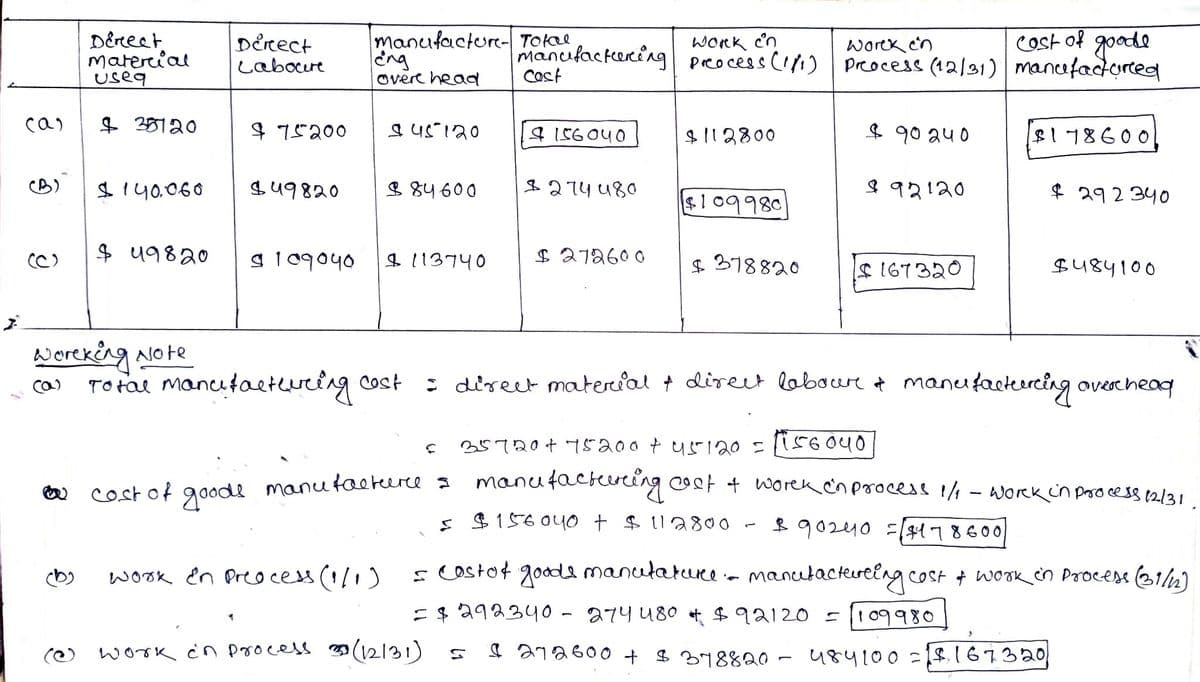 Direct Material Useq | Direct Labour | Manufacture-ing overhead | Total Manufacturing Cost | Work in process (1/1) | Work in Process (12/31) | Cost of goods manufactured
(a) $ 35120 | $ 75200 | $ 45120 | $ 156040 | $ 112800 | $ 90240 | $178600
(B) $ 140,060 | $49820 | $ 84600 | $ 274480 | $109980 | $ 92120 | $ 292340
(C) $ 49820 | $ 109040 | $ 113740 | $ 272600 | $ 378820 | $ 167320 | $484100
Working Note
(a) Total Manufacturing Cost = direct material + direct labour + manufacturing overhead
= 35720 + 75200 + 45120 = 156040
cost of goods manufacture = manufacturing cost + work in process 1/1 - work in process 12/31.
= $156040 + $ 112800 - $ 90240 = $178600
(b) work in process (1/1) = Cost of goods manufature - manufactureing cost + work in Process (31/12)
= $ 292340 - 274480 + $ 92120 = 109980
(c) work in process (12/31) = $ 272600 + $ 378820 - 484100 = $167320